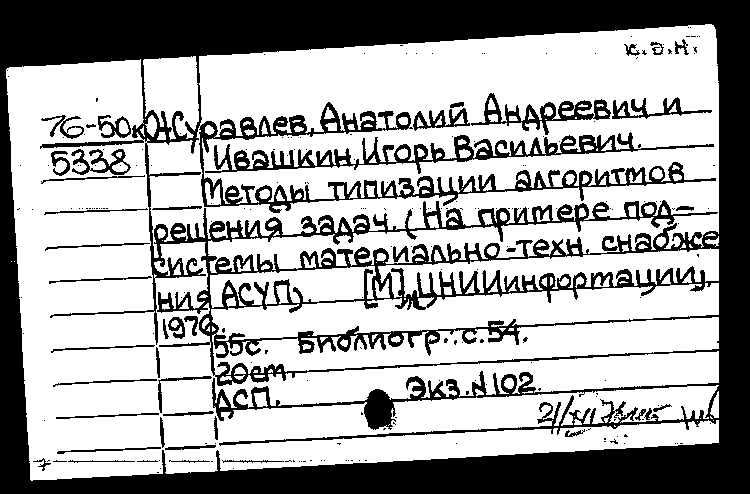 к.э.н.
76-50к Журавлев, Анатолий Андреевич и
5338 Ивашкин, Игорь Васильевич.
Методы типизации алгоритмов
решения задач. (На примере под-
системы материально-техн. снабже
ния АСУП). [М], ЦНИИинформации,
1976.
55с. Библиогр.: с.54.
20см.
ДСП. Экз.N102.
21/XI